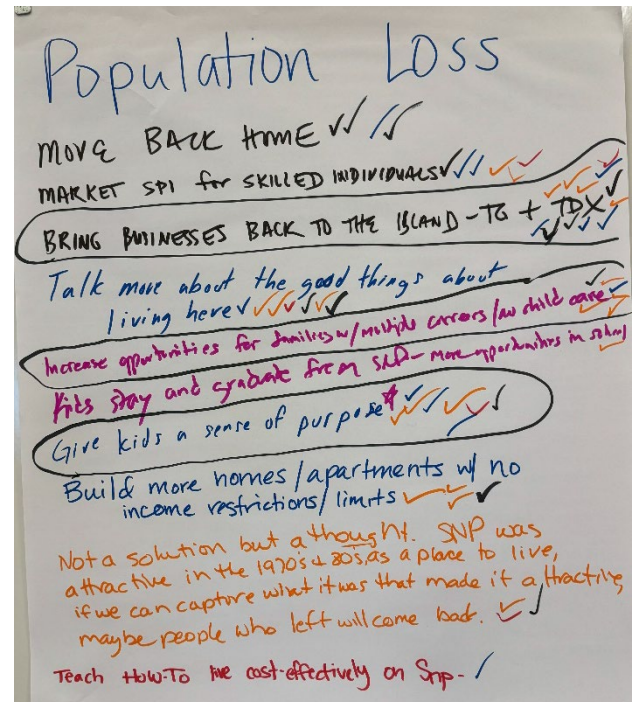 Population Loss
MOVE BACK HOME
MARKET SPI for SKILLED INDIVIDUALS
BRING BUSINESSES BACK TO THE ISLAND - TG + TDX
Talk more about the good things about
living here
Increase opportunities for families w/ multiple careers/ child care
Kids stay and graduate from - more opportunities in
Give kids a sense of purpose
Build more homes/apartments w/ no
income restrictions/limits
Not a solution but a thought. SNP was
attractive in the 1970's + 80's, as a place to live,
if we can capture what it was that made it attractive,
maybe people who left will come back.
Teach How-To live cost-effectively on Snp-